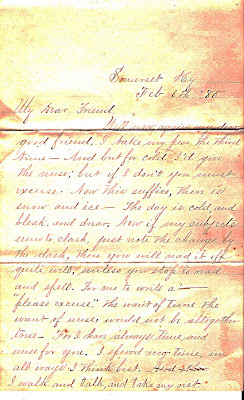 Somerset Ky
Feb 6th '85
My Dear Friend,
Well now again my dear
good friend, I take my pen the third
time – And but for cold I'd give
the muse; but if I don't you must
excuse. Now this suffice, there is
snow and ice – The day is cold and
bleak, and drear, Now if my subjects
seem to clash, just note the change by
the dash, then you will read it off
quite well, unless you stop to read
and spell. For me to write a –
"please excuse" the want of time the
want of muse, would not be altogether
true – For I have always time, and
muse for you. I spend my time, in
all ways I think best.
I walk and talk, and take my rest